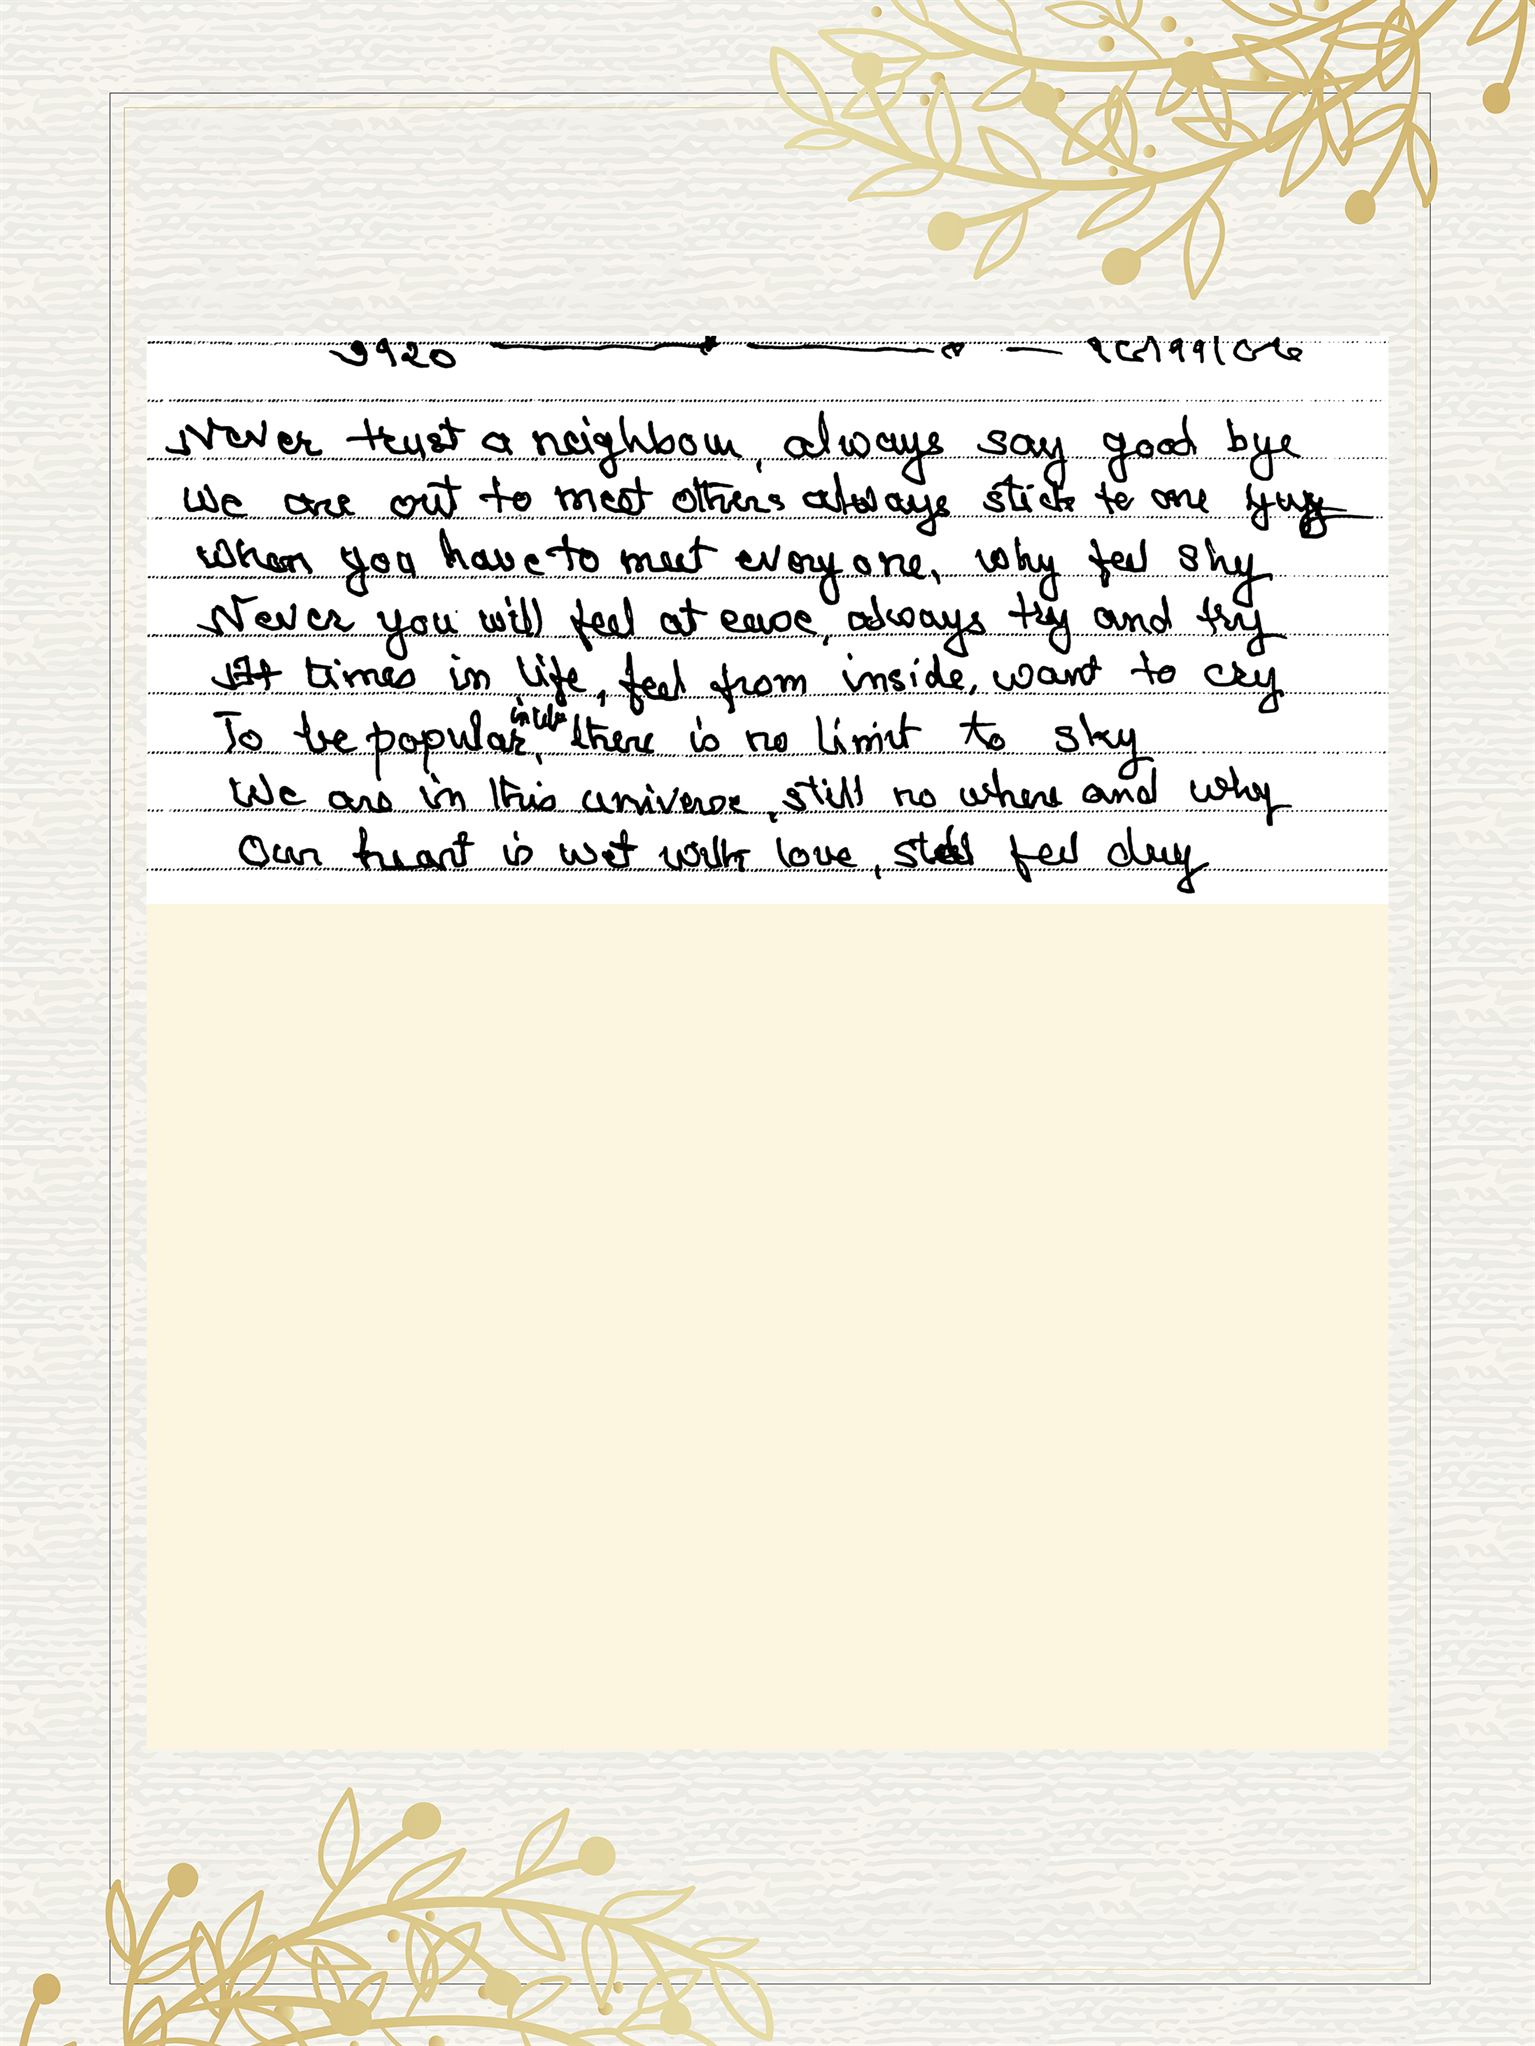 Never trust a neighbour, always say good bye
We are out to meet others always stick to one
When you have to meet everyone, why feel shy
Never you will feel at ease, always try and try
At times in life, feel from inside, want to cry
To be popular, there is no limit to sky
We are in this universe, still no where and why
Our heart is wet with love, still feel dry